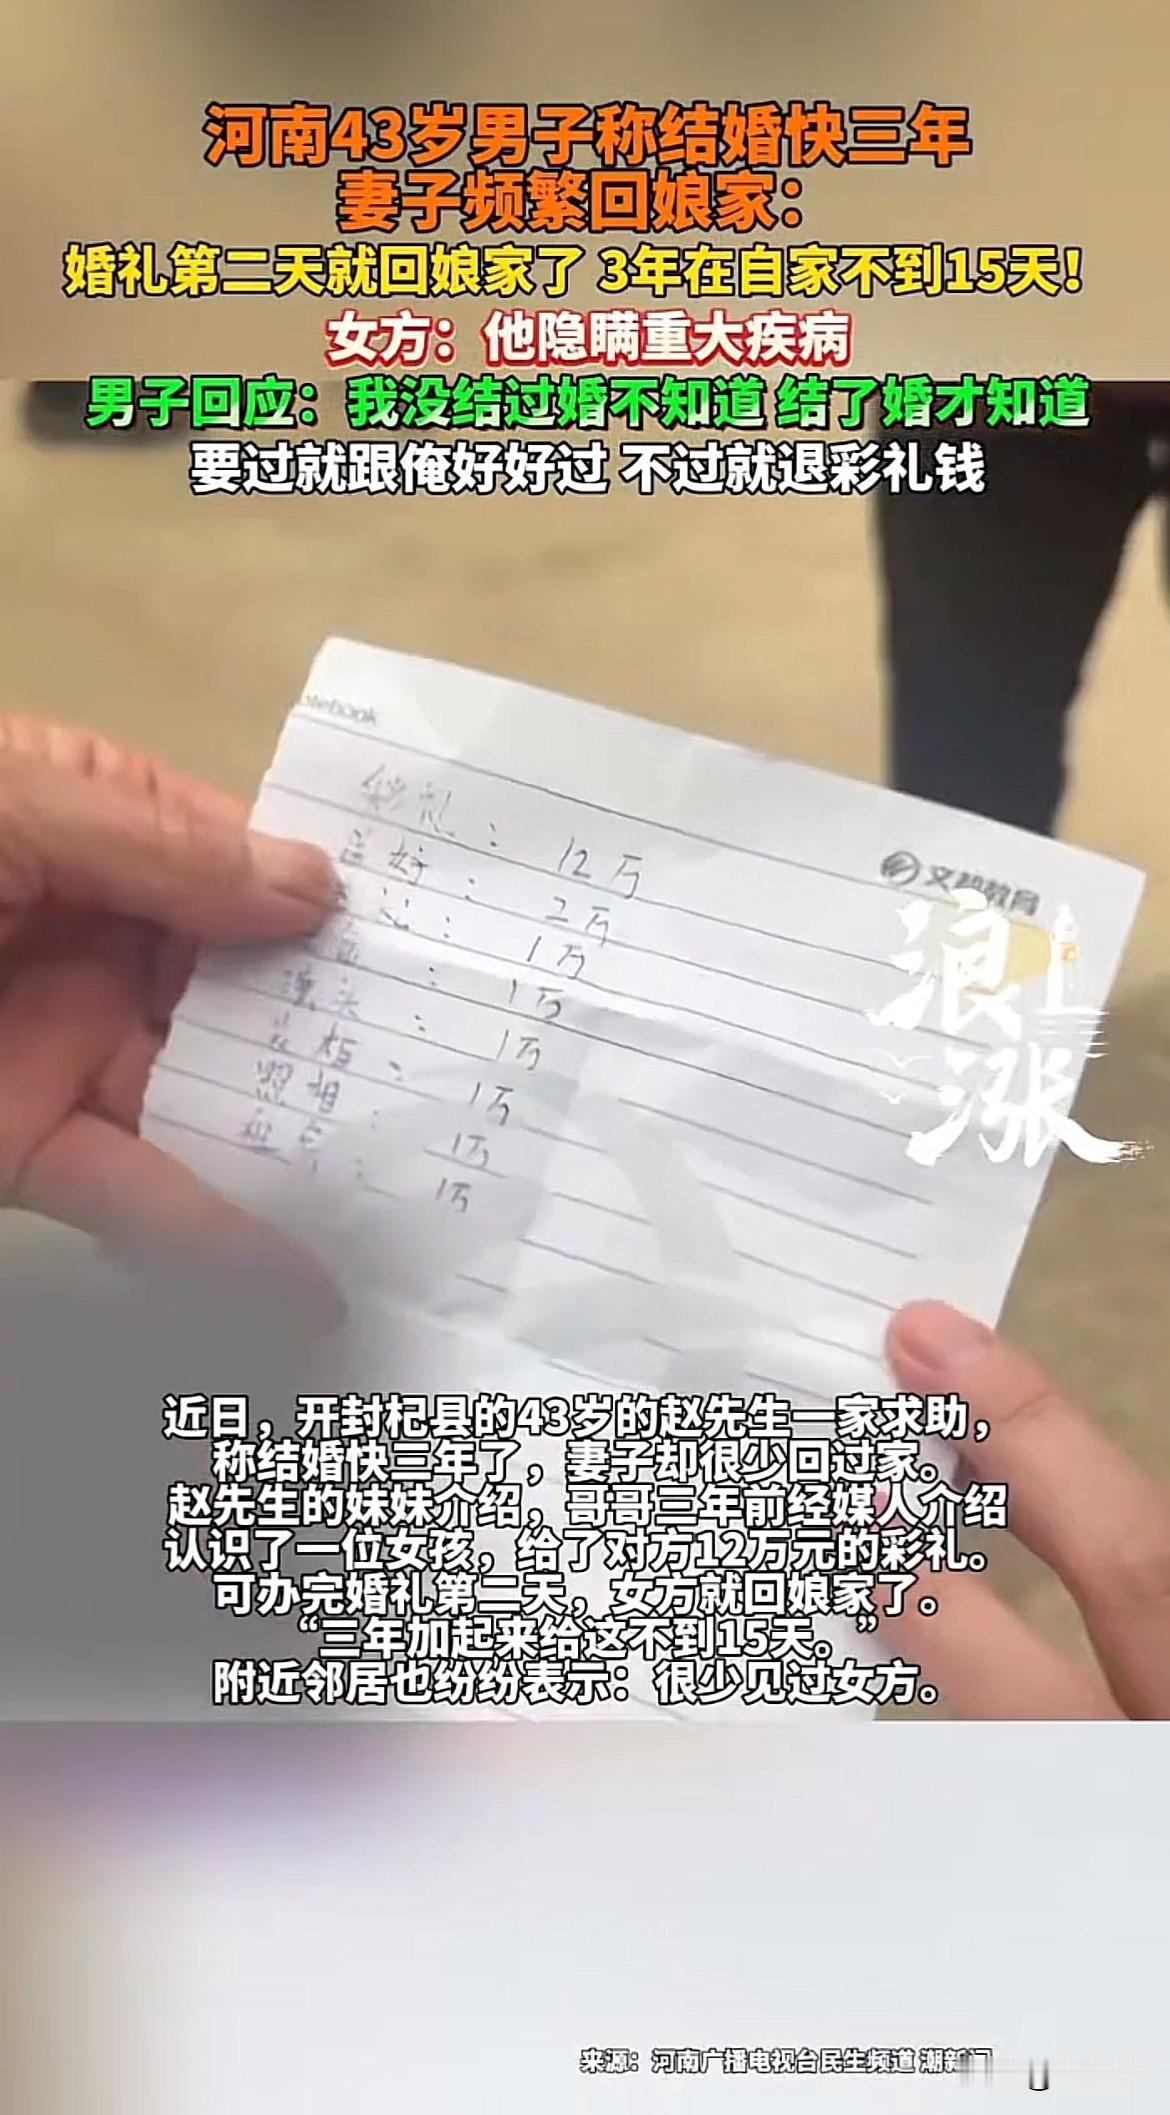 河南43岁男子称结婚快三年
妻子频繁回娘家：
婚礼第二天就回娘家了 3年在自家不到15天！
女方：他隐瞒重大疾病
男子回应：我没结过婚不知道 结了婚才知道
要过就跟俺好好过 不过就退彩礼钱
notebook
文都教育
彩礼：12万
：2万
：1万
：1万
：1万
：1万
照相：1万
：1万
浪上涨
近日，开封杞县的43岁的赵先生一家求助，
称结婚快三年了，妻子却很少回过家。
赵先生的妹妹介绍，哥哥三年前经媒人介绍
认识了一位女孩，给了对方12万元的彩礼。
可办完婚礼第二天，女方就回娘家了。
“三年加起来给这不到15天。”
附近邻居也纷纷表示：很少见过女方。
来源：河南广播电视台民生频道 潮新闻